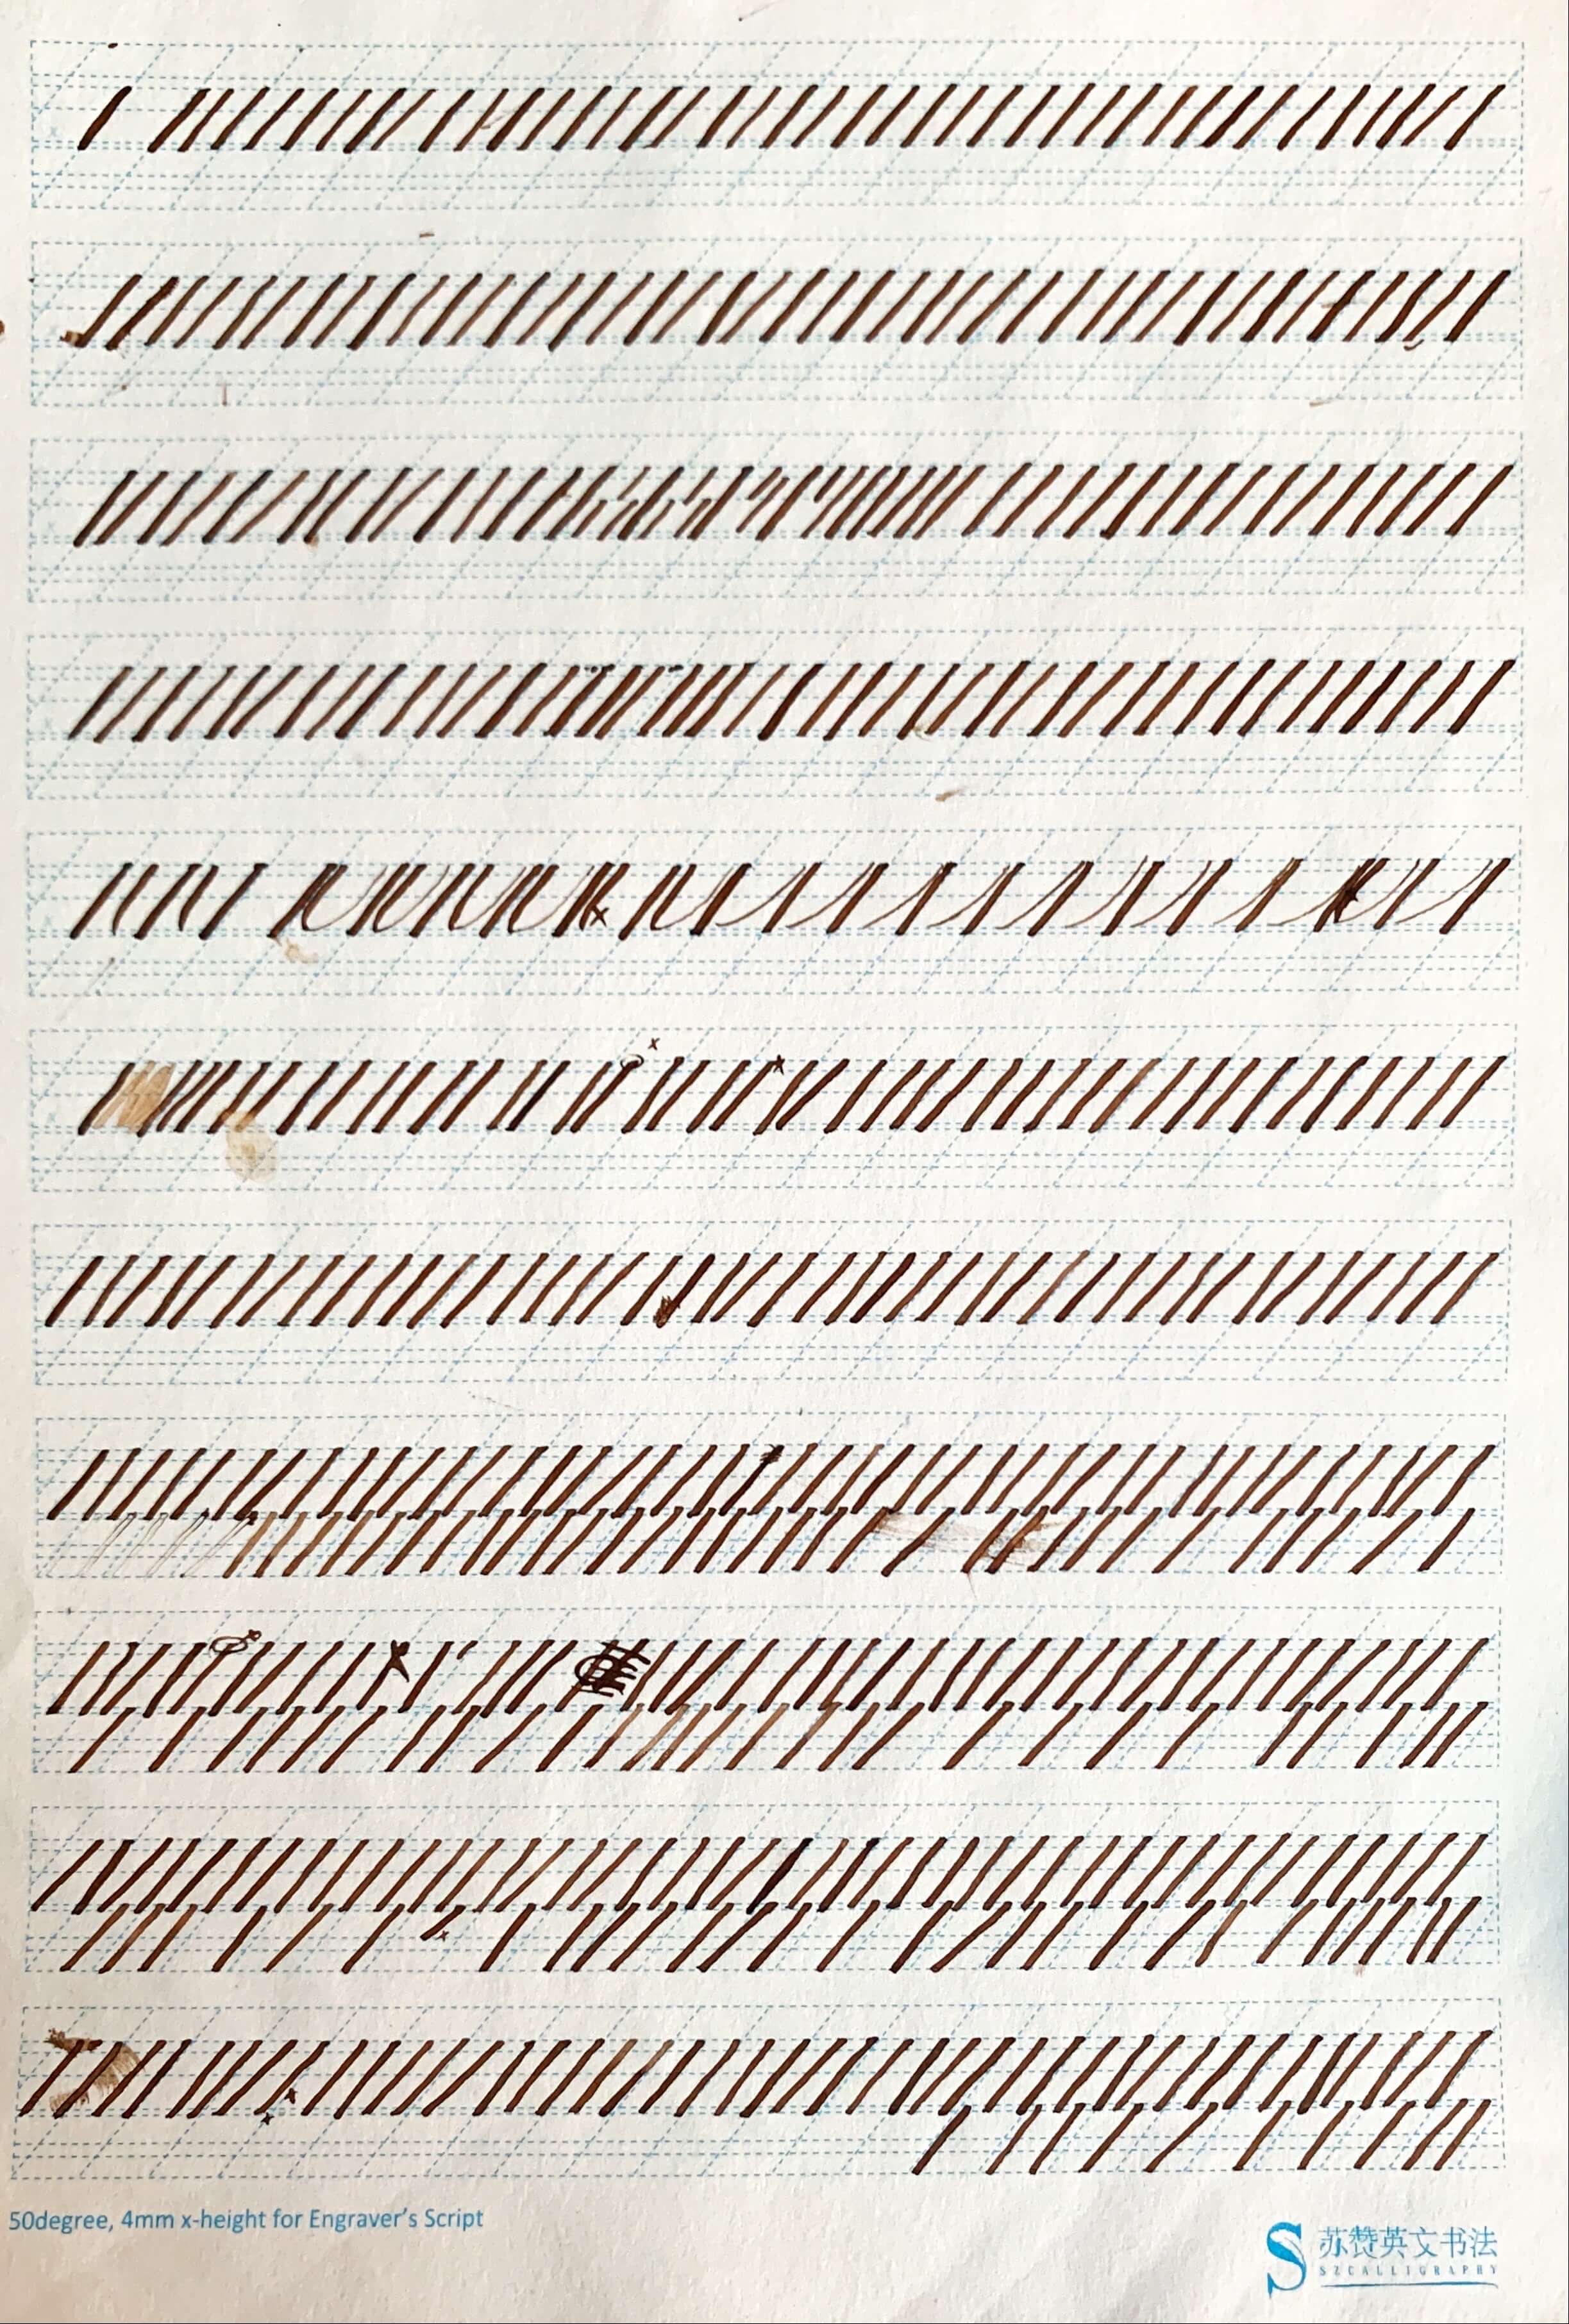 50degree, 4mm x-height for Engraver's Script
苏赞英文书法
SZCALLIGRAPHY